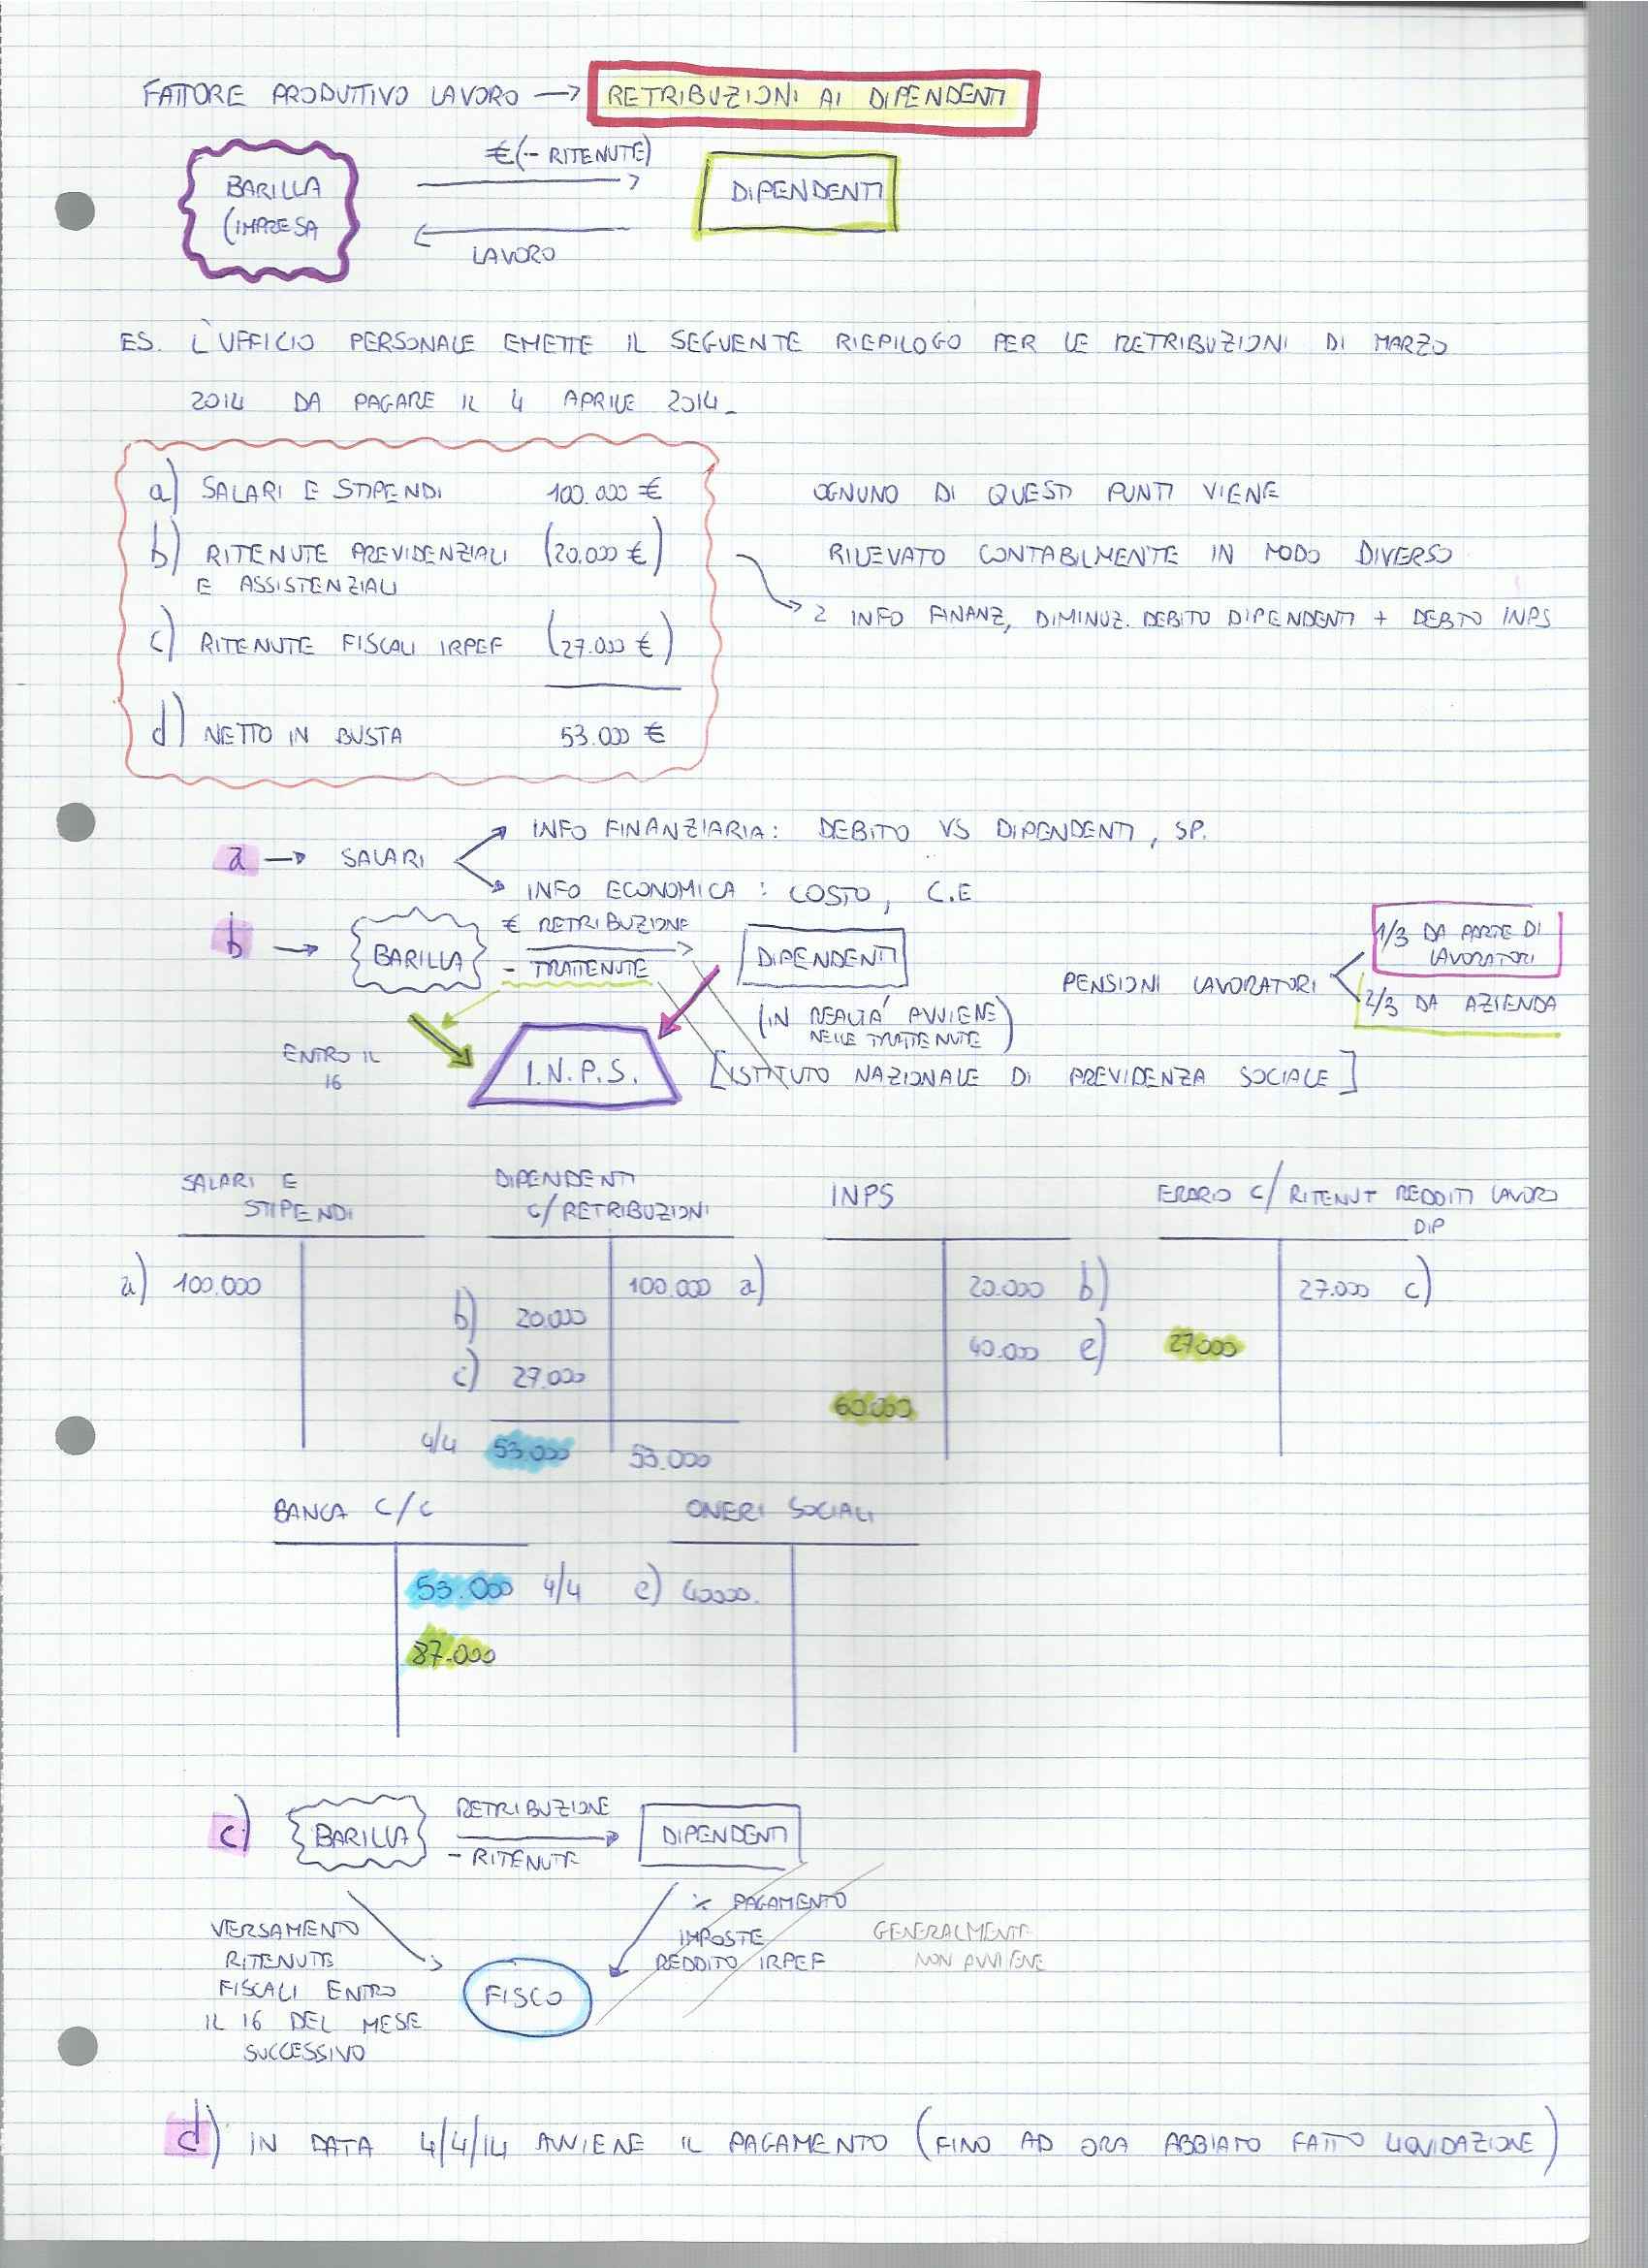 FATTORE PRODUTTIVO LAVORO → RETRIBUZIONI AI DIPENDENTI
€(- RITENUTE)
BARILLA
(IMPRESA
DIPENDENTI
LAVORO
ES. L'UFFICIO PERSONALE EMETTE IL SEGUENTE RIEPILOGO PER LE RETRIBUZIONI DI MARZO
2014 DA PAGARE IL 4 APRILE 2014_
a) SALARI E STIPENDI 100.000 €
OGNUNO DI QUESTI PUNTI VIENE
b) RITENUTE PREVIDENZIALI (20.000 €)
E ASSISTENZIALI
RILEVATO CONTABILMENTE IN MODO DIVERSO
2 INFO FINANZ, DIMINUZ. DEBITO DIPENDENTI + DEBTO INPS
c) RITENUTE FISCALI IRPEF (27.000 €)
d) NETTO IN BUSTA 53.000 €
a → SALARI
INFO FINANZIARIA: DEBITO VS DIPENDENTI, SP.
INFO ECONOMICA: COSTO, C.E
b → BARILLA
€ RETRIBUZIONE
- TRATTENUTE
DIPENDENTI
(IN REALTA' AVVIENE)
NELLE TRATTENUTE
PENSIONI LAVORATORI
1/3 DA PARTE DI
LAVORATORI
2/3 DA AZIENDA
ENTRO IL
16
I.N.P.S.
[ISTITUTO NAZIONALE DI PREVIDENZA SOCIALE]
SALARI E
STIPENDI
DIPENDENTI
C/RETRIBUZIONI
INPS
ERARIO C/ RITENUT REDDITI LAVORO
DIP
a) 100.000
100.000 a)
20.000 b)
27.000 c)
b) 20.000
40.000 e)
27.000
c) 27.000
60.000
4/4 53.000 53.000
BANCA C/C
ONERI SOCIALI
53.000 4/4
e) 40000.
87.000
c) BARILLA
RETRIBUZIONE
- RITENUTE
DIPENDENTI
% PAGAMENTO
IMPOSTE
REDDITO IRPEF
GENERALMENTE
NON AVVIENE
VERSAMENTO
RITENUTE
FISCALI ENTRO
IL 16 DEL MESE
SUCCESSIVO
FISCO
d) IN DATA 4/4/14 AVVIENE IL PAGAMENTO (FINO AD ORA ABBIATO FATTO LIQUIDAZIONE)